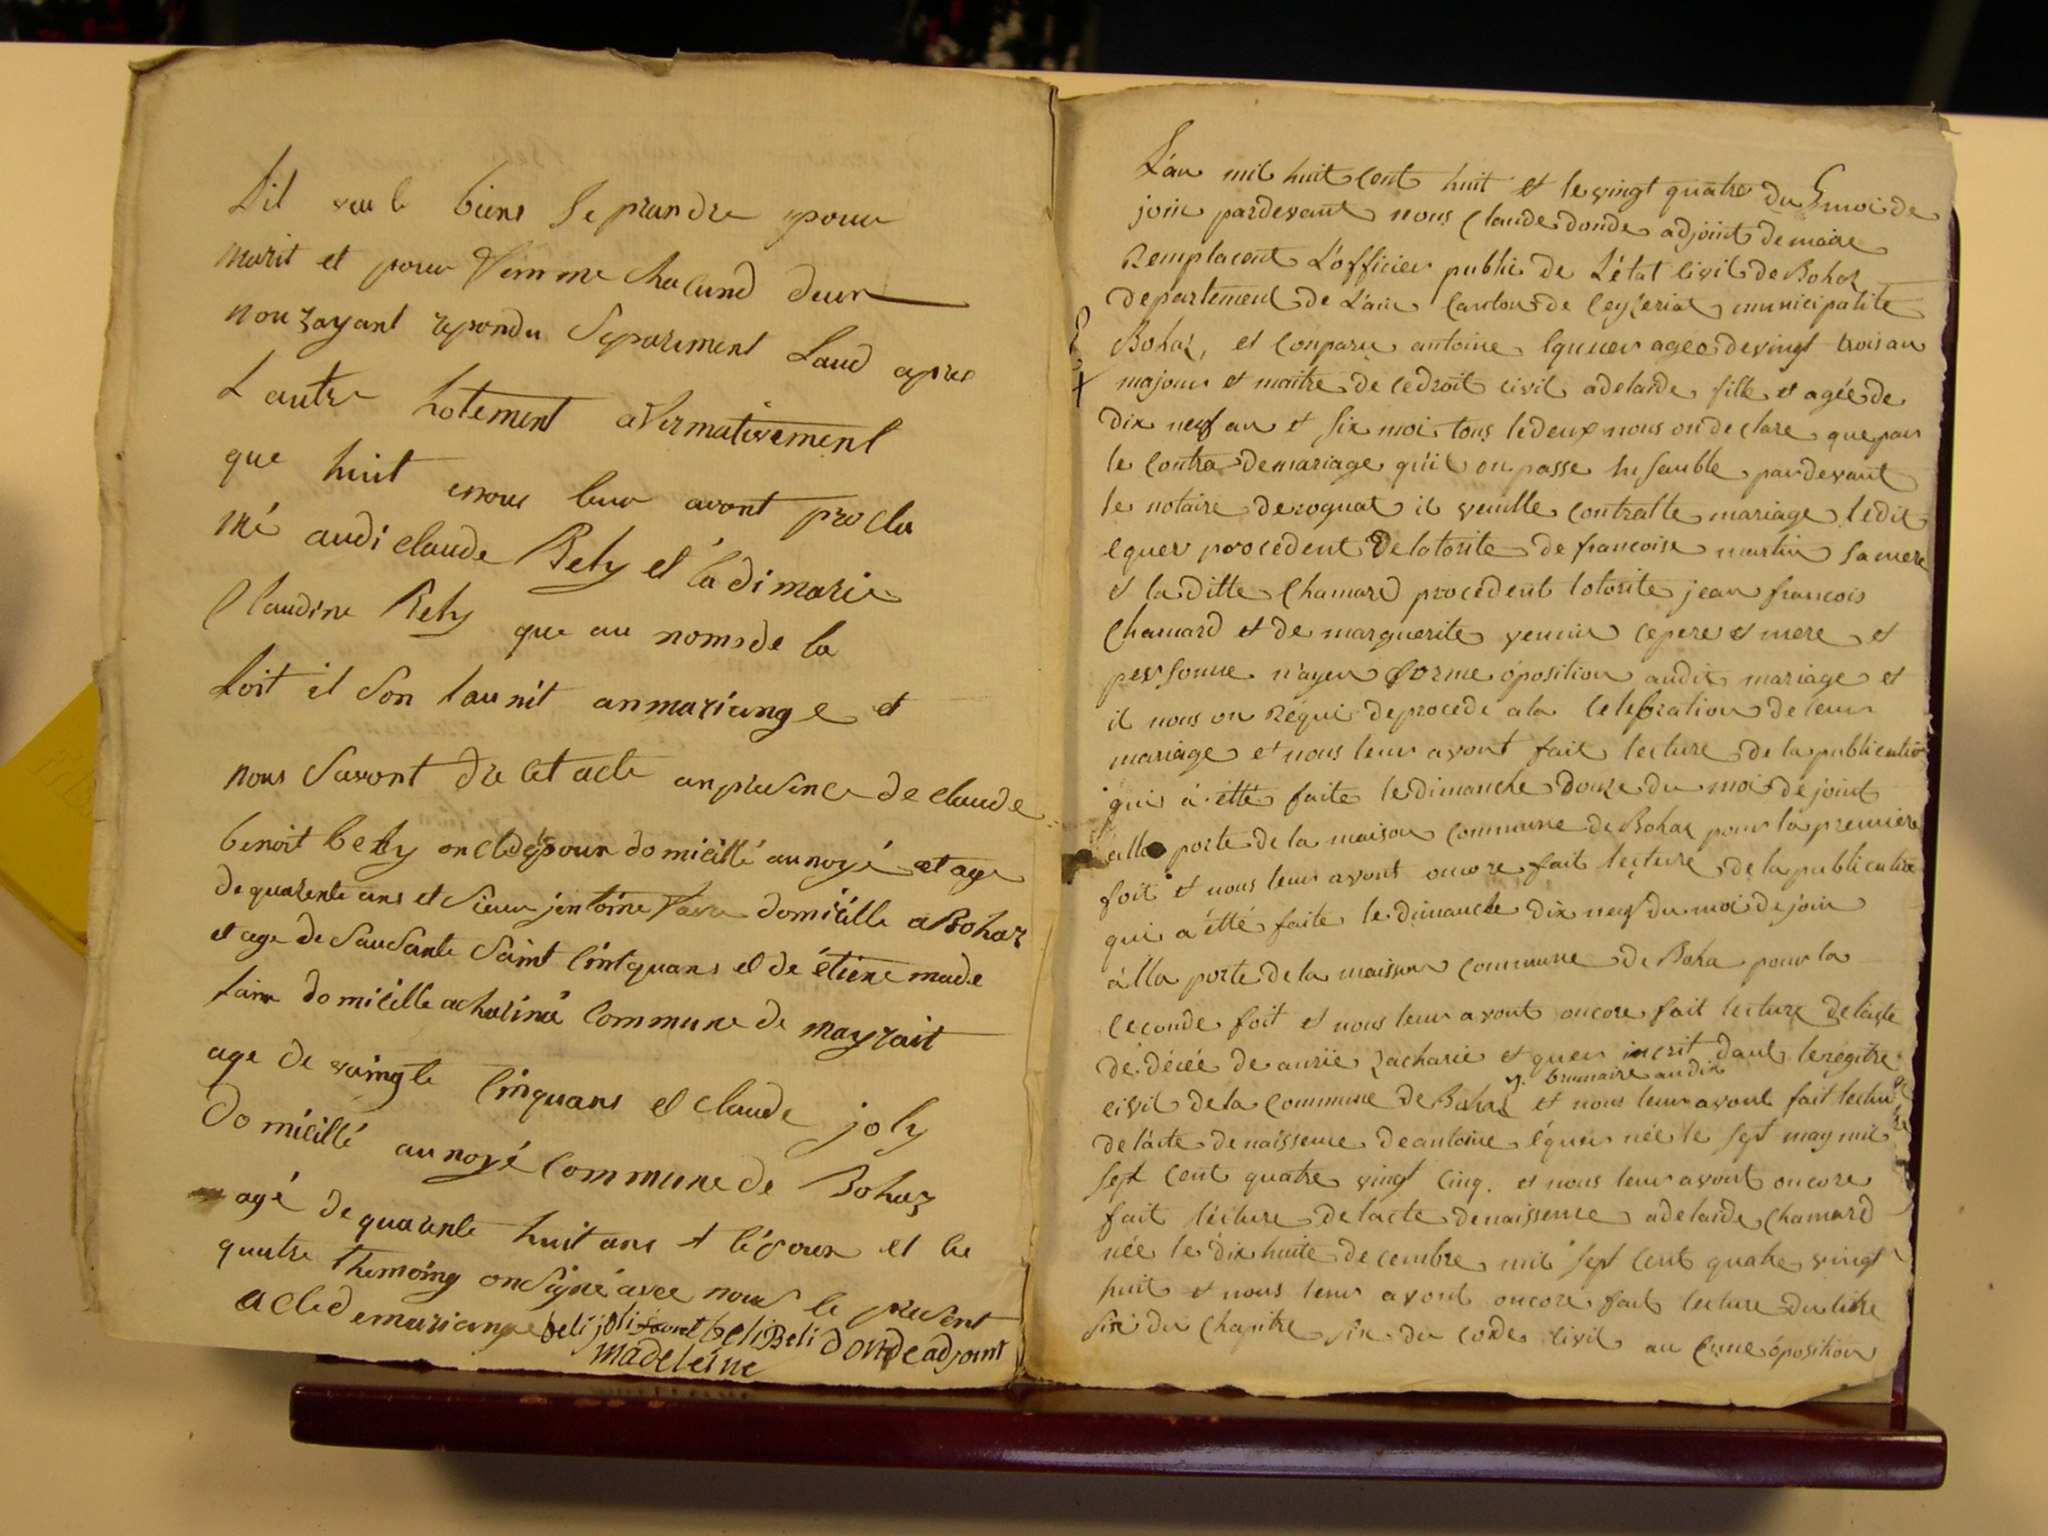 Dil veu le biens se prandre pour
marit et pour femme chacund deux
nouzayant repondu separement laud apres
Lautre hotement afirmativement
que huit enous leur avont procla
mé audi claude Bely et la di marie
Claudine Rely que au noms de la
loit il son launit an mariange et
nous savont dre cet acte anpresence de claude
benoit bely oncle dépour domicillé aunoyé et age
de quarente ans et sieur jentoine favre domicille a Bohaz
et age de sausante saint cintquans et de étiene made
laine domicille acholiné Commune de mayrait
age de vaingte cinquans et claude joly
domicillé aunoyé commune de Bohaz
agé de quarente huit ans lépoux et le
quatre themoing on signé avec nous le present
acte de mariange beli joli favre beli Beli donde adjoint
madeleine
L'an mil huit cent huit et le vingt quatre du moi de
join pardevant nous Claude donde adjoint demaire
Remplacent L'officier public de L'état civil de Bohaz
departement de L'ain Canton de Ceyzeriat municipalite
Bohaz, et conparu antoine Equuer agée de vingt trois an
majour et maitre de cedroit civil adelaide fille et agée de
dix neuf an et six moi tous ledeux nous on declare que par
le contra demariage qu'il on passe husauble pardevant
le notaire derognat il veuille contratte mariage ledit
equer procedent delatorite de francoise martin sa mere
et la ditte Chamard procedent lotorite jean francois
Chamard et de marguerite vennin cepere et mere et
personne n'ayen forme óposition audit mariage et
il nous on Réqui deprocede a la Celebration de leur
mariage et nous leur avont fait lecture de la publicatio
qui à étté faite le dimanche douze du moi de joint
alla porte de la maison commune de Bohaz pour la premiere
foit et nous leur avont oncore fait lecture de la publicatio
qui a étté faite le dimanche dix neuf du moi de join
à lla porte de la maison commune de Boha pour la
ceconde foit et nous leur avont oncore fait lecture de lacte
de décée de aurie zacharie et quer inscrit danl le regitre
y. brumaire an dix
civil de la commune de Bohas et nous leur avont fait lectur
de lácte denaissence de antoine équer née le sept may mil
sept cent quatre vingt cinq. et nous leur avont oncore
fait lécture de lacte denaissence adelaide Chamard
née le dix huite decembre mil sept cent quatre vingt
huit et nous leur avont oncore fait lecture du litre
six du Chapitre six du code civil au Cune óposition